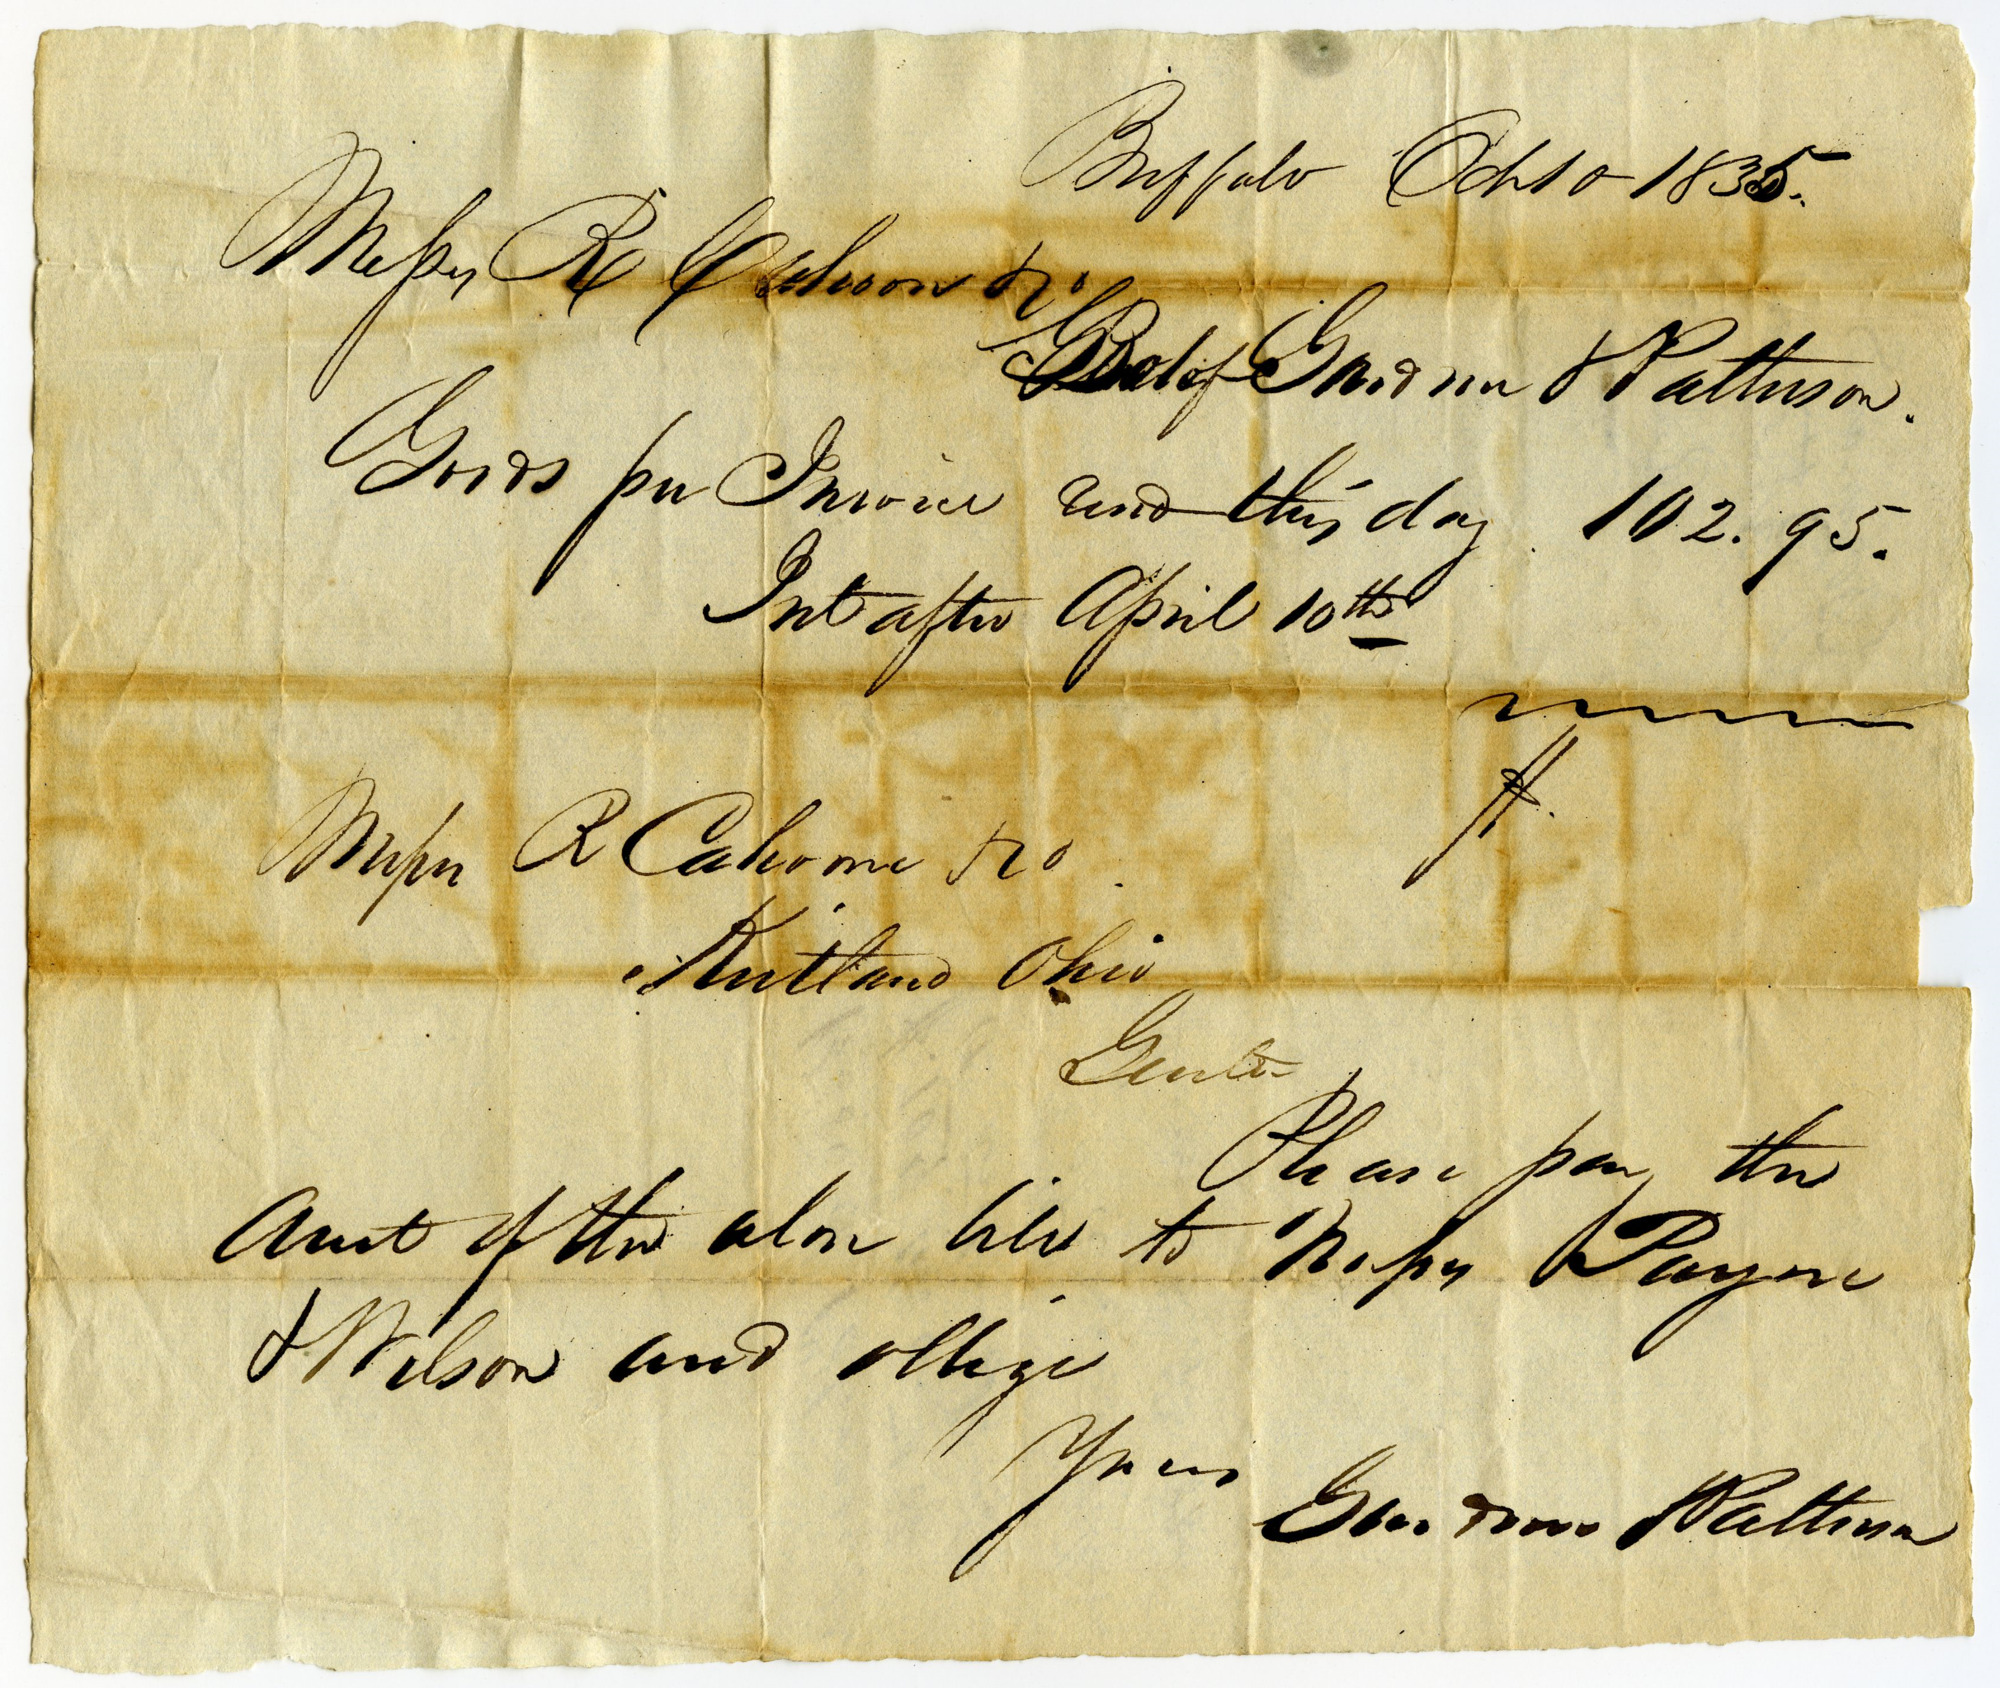 Buffalo Oct 10 1835.
Messrs R Cahoon & Co
Bot of Gardner & Patterson.
Goods per Invoice rend this day. 102.95.
Int after April 10th
Messrs R Cahoone & Co
Kirtland Ohio
Gents
Please pay the
amt of the above bill to Messrs Payne
& Wilson and oblige
Yours
Gardner & Patterson